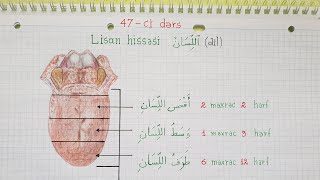 47-ci dərs
Lisan hissəsi اَللِّسَانْ (dil)
أَقْصَى اللِّسَانِ 2 məxrəc 2 hərf
وَسَطُ اللِّسَانِ 1 məxrəc 3 hərf
طَرَفُ اللِّسَانِ 6 məxrəc 12 hərf